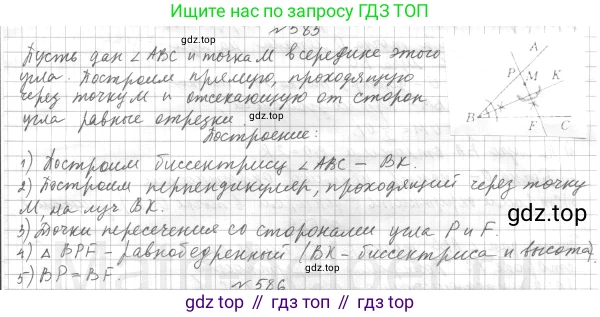 Ищите нас по запросу ГДЗ ТОП
№585
Пусть дан ∠ABC и точка M в середине этого
угла. Построим прямую, проходящую
через точку M и отсекающую от сторон
угла равные отрезки.
gdz.top
A
P
M
K
B
F
C
Построение:
gdz.top
1) Построим биссектрису ∠ABC – BK.
2) Построим перпендикуляр, проходящий через точку
M, на луч BK.
gdz.top
3) Точки пересечения со сторонами угла P и F.
4) △BPF – равнобедренный (BK – биссектриса и высота).
5) BP = BF.
gdz.top
№586
gdz.top // гдз.топ // гдз топ